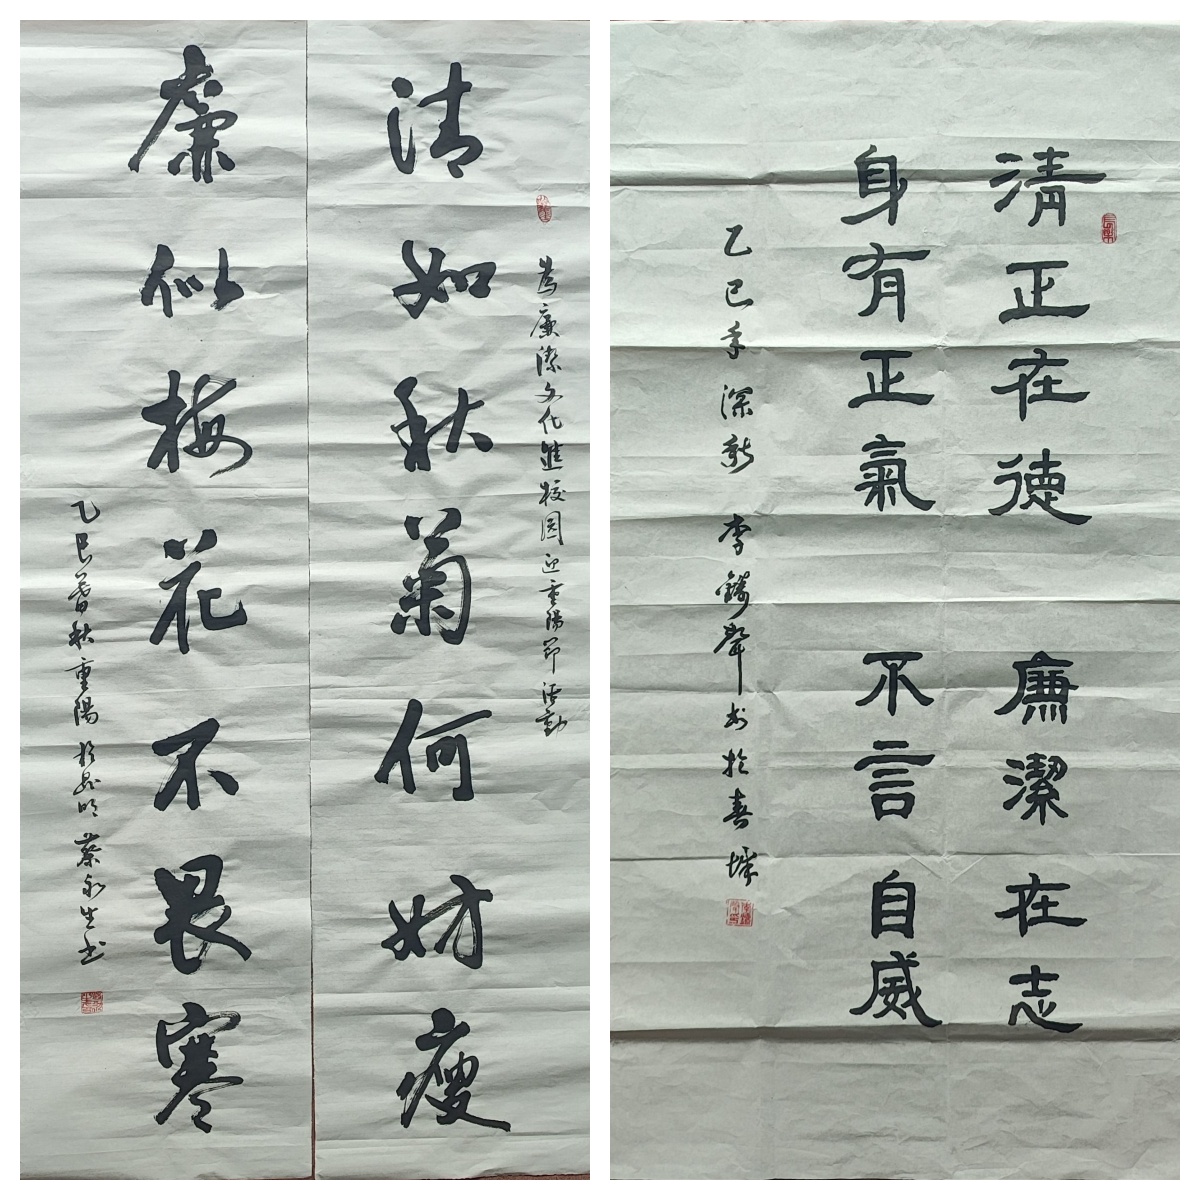 为廉潔文化進校园迎重陽節活動
清如秋菊何妨瘦
廉似梅花不畏寒
乙巳暮秋重陽於昆明蔡永生书
清正在德 廉潔在志
身有正氣 不言自威
乙巳年深秋 李鑄聲书於春城